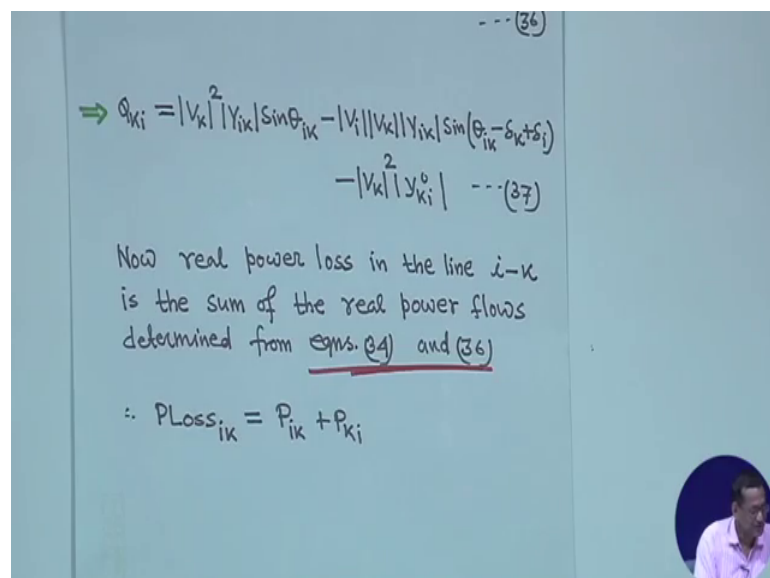 ---(36)
⇒ Q_Ki = |V_K|^2 |Y_iK| Sinθ_iK - |V_i||V_K||Y_iK| Sin(θ_iK - δ_K + δ_i)
- |V_K|^2 |y_Ki^o| ---(37)
Now real power loss in the line i-K
is the sum of the real power flows
determined from eqns.(34) and (36)
∴ PLoss_iK = P_iK + P_Ki